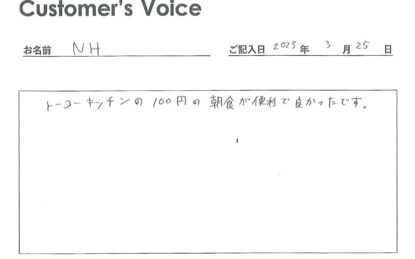 Customer's Voice
お名前 NH ご記入日 2023 年 3 月 25 日
トーコーキッチンの 100円の 朝食が便利で良かったです。